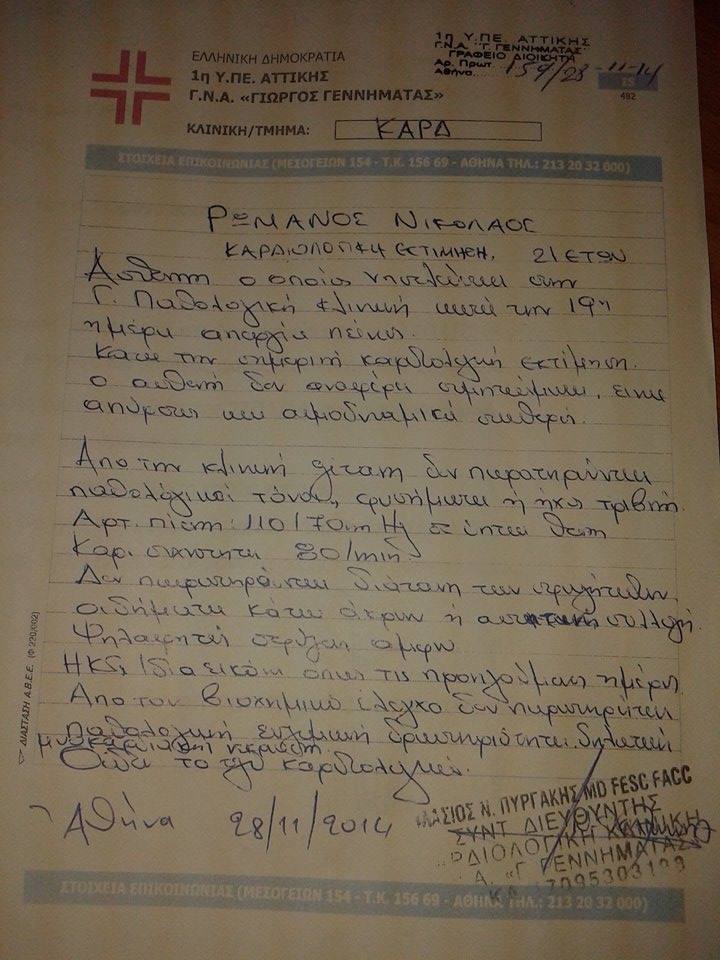 ΕΛΛΗΝΙΚΗ ΔΗΜΟΚΡΑΤΙΑ
1η Υ.ΠΕ. ΑΤΤΙΚΗΣ
Γ.Ν.Α. «ΓΙΩΡΓΟΣ ΓΕΝΝΗΜΑΤΑΣ»
1η Υ.ΠΕ. ΑΤΤΙΚΗΣ
Γ.Ν.Α. "Γ. ΓΕΝΝΗΜΑΤΑΣ"
ΓΡΑΦΕΙΟ ΔΙΟΙΚΗΤΗ
Αρ. Πρωτ.
Αθήνα 28-11-14
482
ΚΛΙΝΙΚΗ/ΤΜΗΜΑ: ΚΑΡΔ
ΣΤΟΙΧΕΙΑ ΕΠΙΚΟΙΝΩΝΙΑΣ (ΜΕΣΟΓΕΙΩΝ 154 - Τ.Κ. 156 69 - ΑΘΗΝΑ ΤΗΛ.: 213 20 32 000)
ΡΩΜΑΝΟΣ ΝΙΚΟΛΑΟΣ
ΚΑΡΔΙΟΛΟΓΙΚΗ ΕΚΤΙΜΗΣΗ, 21 ΕΤΩΝ
Ασθενή ο οποίος νοσηλεύεται στην
Γ. Παθολογική κλινική κατά την 19η
ημέρα απεργία πείνας.
Κατά την σημερινή καρδιολογική εκτίμηση
ο ασθενή δεν αναφέρει συμπτώματα, είναι
απύρετος και αιμοδυναμικά σταθερή.
Απο την κλινική εξέταση δεν παρατηρούνται
παθολογικοί τόνοι, φυσήματα ή ήχος τριβής.
Αρτ. πίεση: 110/70 mmHg σε ύπτια θέση
Καρ. συχνότητα 80/min.
Δεν παρατηρούνται διάταση των σφαγίτιδων,
οιδήματα κάτω άκρων ή συλλογή.
Ψηλαφητές σφύξεις άμφω
ΗΚG, ίδια εικόνα όπως τις προηγούμενες ημέρες
Απο τον βιοχημικό έλεγχο δεν παρατηρείται
παθολογική ενζυμική δραστηριότητα δηλωτική
μυοκαρδιακή νέκρωση.
το καρδιολογικώς.
Αθήνα 28/11/2014
ΠΥΡΓΑΚΗΣ MD FESC FACC
ΣΥΝΤ. ΔΙΕΥΘΥΝΤΗΣ
ΡΔΙΟΛΟΓΙΚΗ
Α. «Γ. ΓΕΝΝΗΜΑΤΑΣ»
ΔΙΑΣΤΑΣΗ Α.Β.Ε.Ε. (Φ 220/002)
ΣΤΟΙΧΕΙΑ ΕΠΙΚΟΙΝΩΝΙΑΣ (ΜΕΣΟΓΕΙΩΝ 154 - Τ.Κ. 156 69 - ΑΘΗΝΑ ΤΗΛ.: 213 20 32 000)